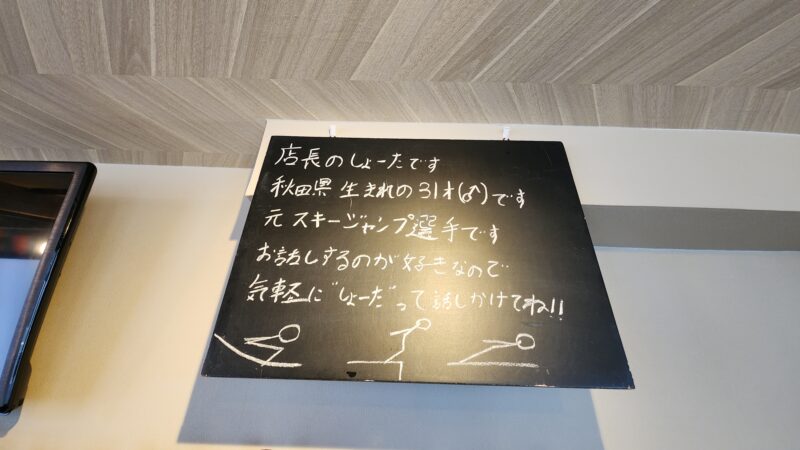 店長のしょーたです
秋田県 生まれの 31才(♂)です
元 スキージャンプ選手です
お話しするのが好きなので
気軽に"しょーた"って話しかけてね!!